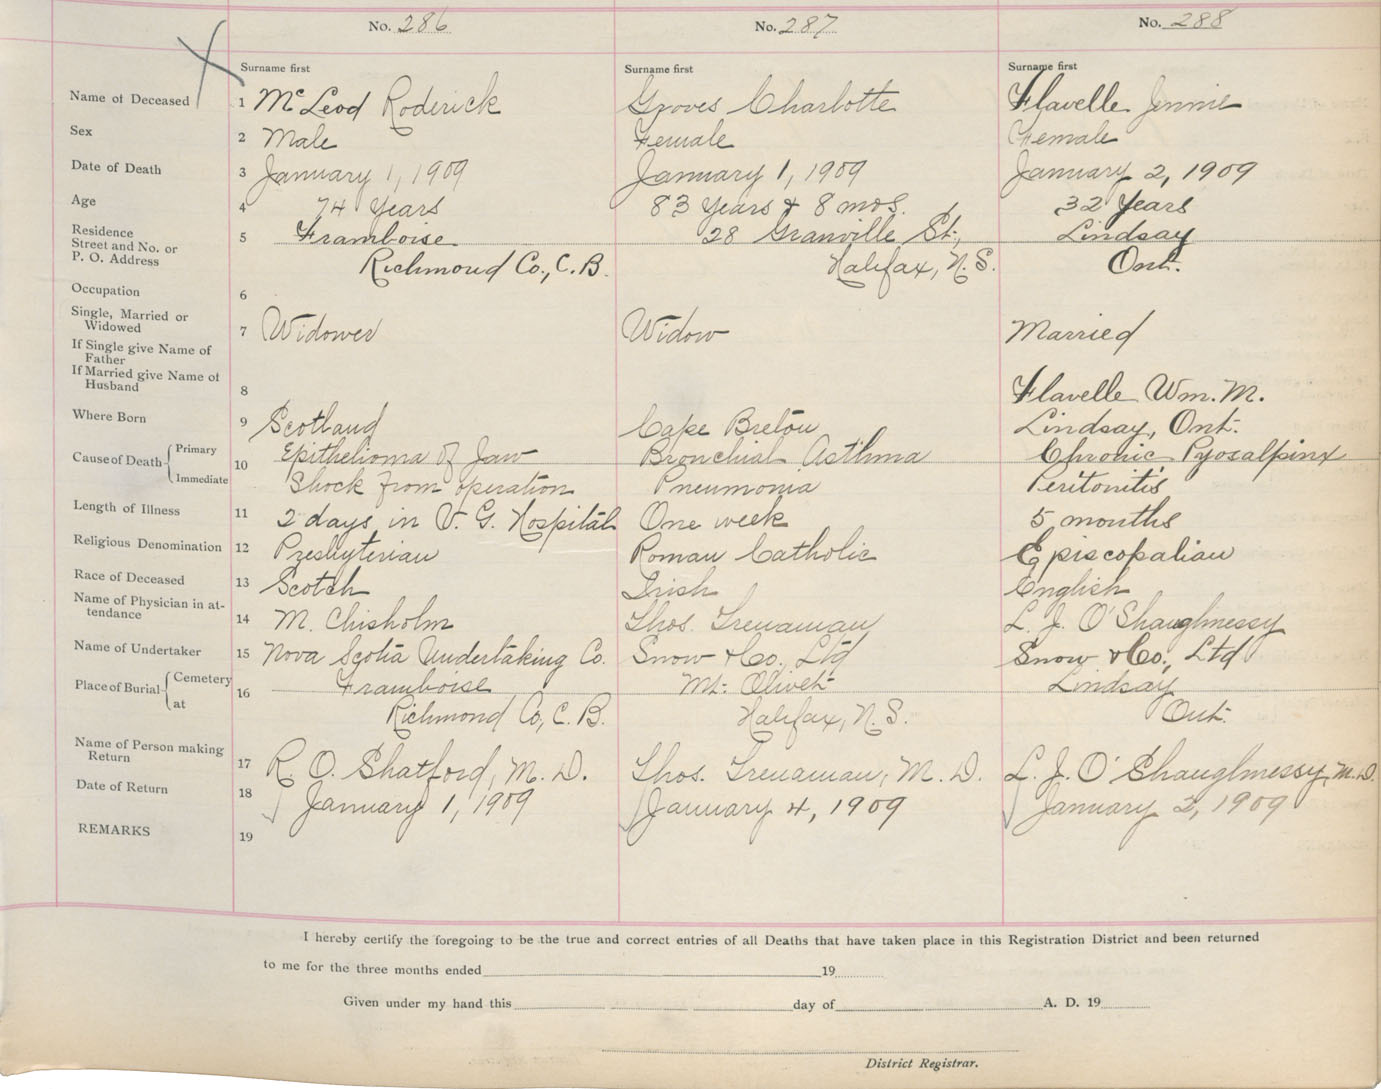 No. 286 No. 287 No. 288
Surname first Surname first Surname first
Name of Deceased 1 McLeod Roderick Groves Charlotte Flavelle Jennie
Sex 2 Male Female Female
Date of Death 3 January 1, 1909 January 1, 1909 January 2, 1909
Age 4 74 Years 83 Years & 8 mos. 32 Years
Residence
Street and No. or 5 Framboise 28 Granville St., Lindsay
P. O. Address Richmond Co., C. B. Halifax, N. S. Ont.
Occupation 6
Single, Married or
Widowed 7 Widower Widow Married
If Single give Name of
Father
If Married give Name of
Husband 8 Flavelle Wm. M.
Where Born 9 Scotland Cape Breton Lindsay, Ont.
Cause of Death Primary 10 Epithelioma of Jaw Bronchial Asthma Chronic Pyosalpinx
Immediate Shock from operation Pneumonia Peritonitis
Length of Illness 11 2 days in V. G. Hospital One week 5 months
Religious Denomination 12 Presbyterian Roman Catholic Episcopalian
Race of Deceased 13 Scotch Irish English
Name of Physician in at-
tendance 14 M. Chisholm Thos. Trenaman L. J. O'Shaughnessy
Name of Undertaker 15 Nova Scotia Undertaking Co. Snow & Co., Ltd Snow & Co., Ltd
Place of Burial Cemetery 16 Framboise Mt. Olivet Lindsay
at Richmond Co, C. B. Halifax, N. S. Ont.
Name of Person making
Return 17 R. O. Shatford, M. D. Thos. Trenaman, M. D. L. J. O'Shaughnessy, M. D.
Date of Return 18 January 1, 1909 January 4, 1909 January 2, 1909
REMARKS 19
I hereby certify the foregoing to be the true and correct entries of all Deaths that have taken place in this Registration District and been returned
to me for the three months ended 19
Given under my hand this day of A. D. 19
District Registrar.